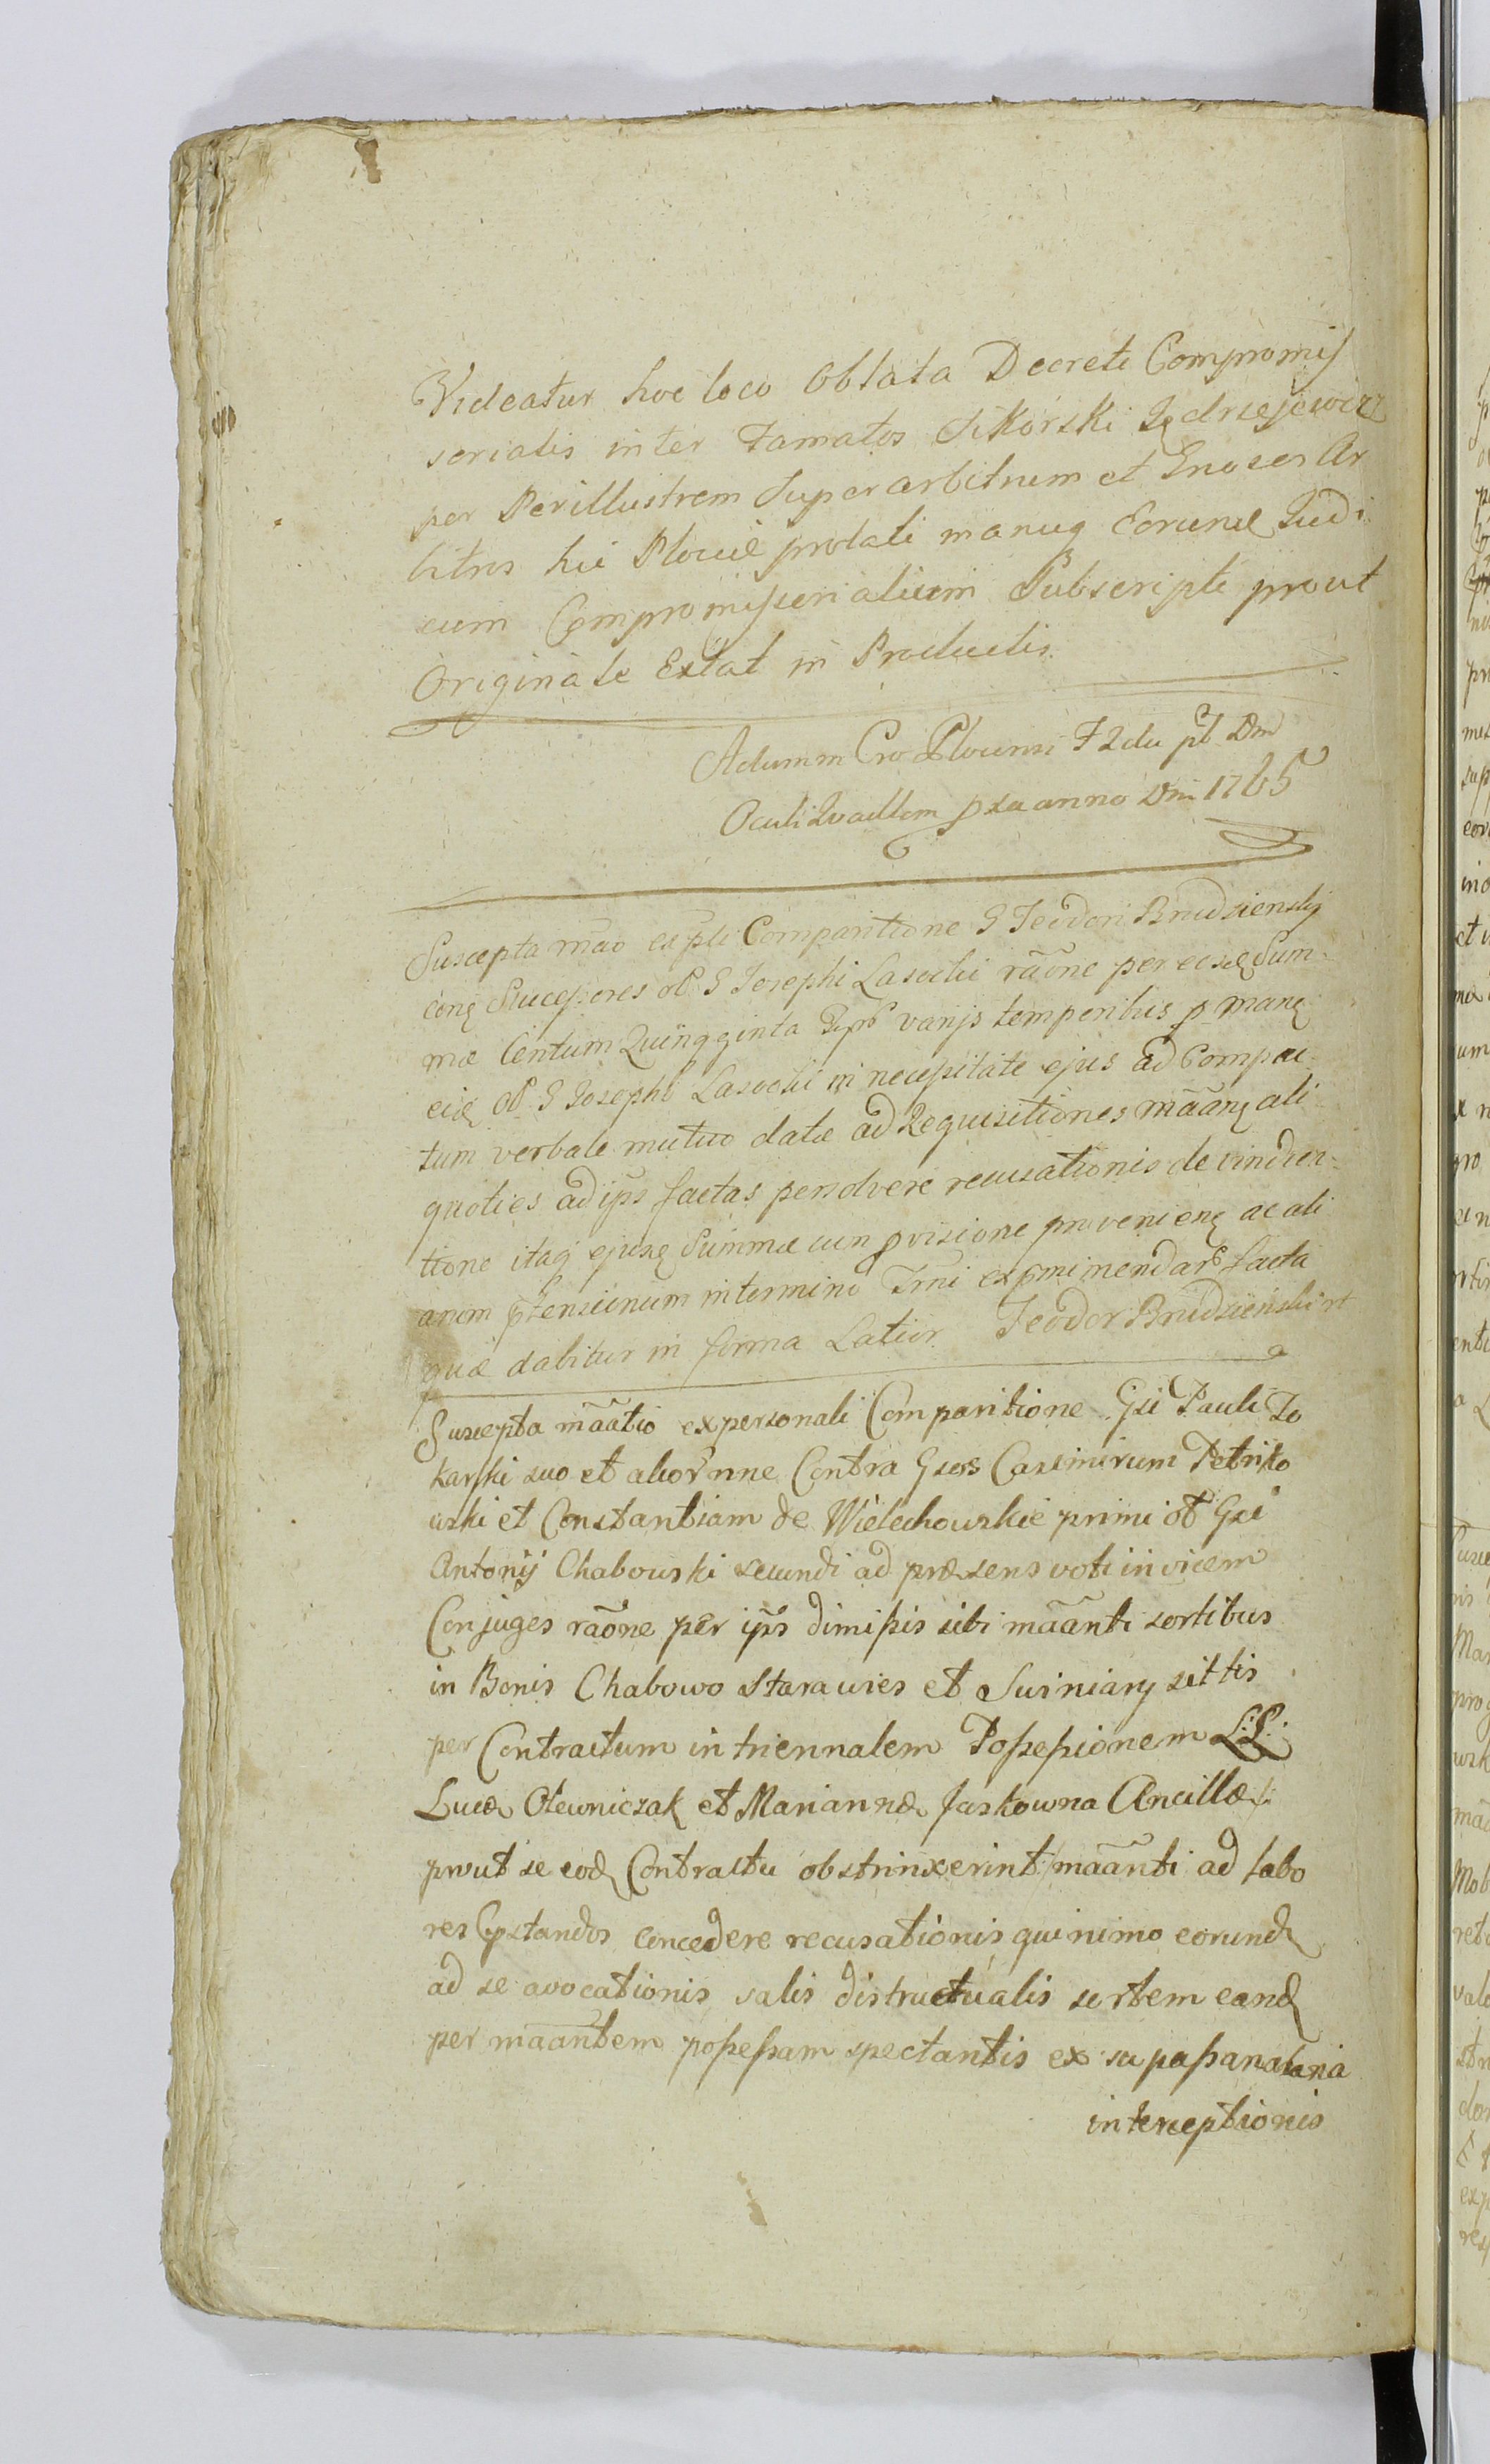 Videatur hoc loco Oblata Decreti Compromis
serialis inter Famatos Sikorski Jędrzejewicz
per Perillustrem Superarbitrum et Gnosos Ar
bitros hic Plociæ prolati manuq Eorund Judi
cum Compromisserialium Subscripti prout
Originale Extat in Productis.
Actum in Cro Plocensi F 2da pt Dm
Oculi Quadlem pxa anno Dni 1765
Suscepta mãao ex pli Comparitione G Teodori Brudzienskj
conq Successores ol G Josephi Lasocki raõne per eosd Sum-
mæ Centum Quinqginta varijs temporibus p manq
eid ol G Josepho Lasocki in necessitate ejus ad Compac
tum verbale mutuo datæ ad Requisitiones mãanq ali
quoties ad ips factas persolvere recusationis de vindica-
tione itaq ejusd Summæ cum pvisione provenienq ac ali
arum ptensionum in termino Trni exprimendar facta
quæ dabitur in forma Latior Teodor Brudzienski
Suscepta mãatio ex personali Comparitione Gsi Pauli To
karski suo et alior nne Contra Gsos Casimirum Petriko
wski et Constantiam de Wielechowskie primi ol Gsi
Antonij Chabowski secundi ad præsens voti invicem
Conjuges raõne per ips dimissis sibi mãanti sortibus
in Bonis Chabowo Starawies et Suiniary sittis
per Contractum in triennalem Possessionem L:L:
Lucæ Olewniczak et Mariannæ Jaskowna Ancillæ
prout se eod Contractu obstrinxerint mãanti ad labo
res pstandos concedere recusationis quinimo eorund
ad se avocationis salis districtualis sortem eand
per mãantem possessam spectantis ex
interceptionis